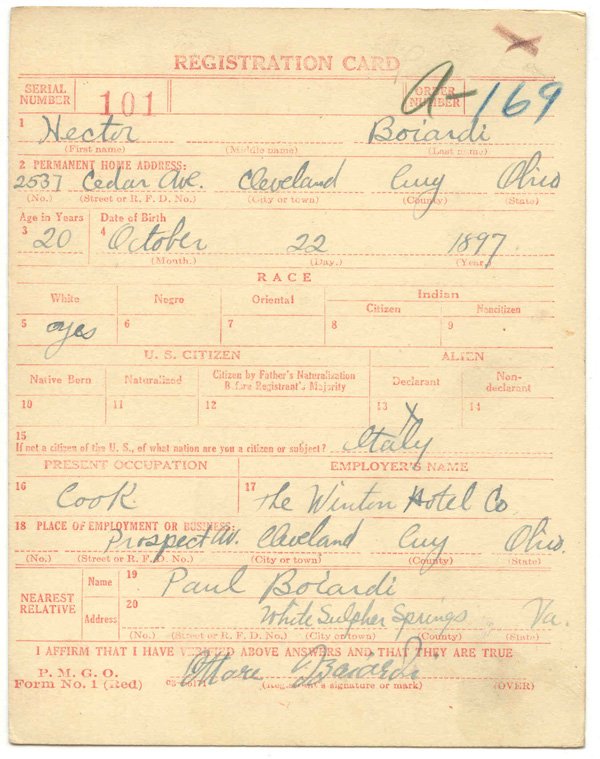 REGISTRATION CARD
SERIAL NUMBER 101 ORDER NUMBER A-169
1 Hector Boiardi
(First name) (Middle name) (Last name)
2 PERMANENT HOME ADDRESS:
2537 Cedar Ave. Cleveland Cuy Ohio
(No.) (Street or R. F. D. No.) (City or town) (County) (State)
Age in Years Date of Birth
3 20 4 October 22 1897
(Month.) (Day.) (Year)
RACE
White Negro Oriental Indian
Citizen Noncitizen
5 yes 6 7 8 9
U. S. CITIZEN ALIEN
Native Born Naturalized Citizen by Father's Naturalization Before Registrant's Majority Declarant Non-declarant
10 11 12 13 X 14
15
If not a citizen of the U. S., of what nation are you a citizen or subject? Italy
PRESENT OCCUPATION EMPLOYER'S NAME
16 Cook 17 The Winton Hotel Co
18 PLACE OF EMPLOYMENT OR BUSINESS:
Prospect Av. Cleveland Cuy Ohio.
(No.) (Street or R. F. D. No.) (City or town) (County) (State)
NEAREST RELATIVE Name 19 Paul Boiardi
Address 20 White Sulpher Springs, Va.
(No.) (Street or R. F. D. No.) (City or town) (County) (State)
I AFFIRM THAT I HAVE VERIFIED ABOVE ANSWERS AND THAT THEY ARE TRUE
P. M. G. O.
Form No. 1 (Red) Boiardi
(Registrant's signature or mark) (OVER)